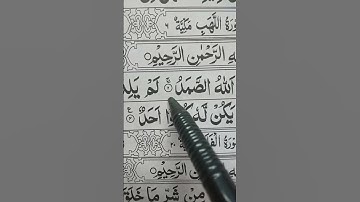 سُوْرَةُ اللَّهَبِ مَكِّيَّةٌ ٦
الرَّحْمٰنِ الرَّحِيْمِ
اَللّٰهُ الصَّمَدُ ۚ ٢ لَمْ يَلِدْ
يَكُنْ لَّهٗ اَحَدٌ ٤
سُوْرَةُ ٢٠
الرَّحِيْمِ
مِنْ شَرِّ مَا خَلَقَ